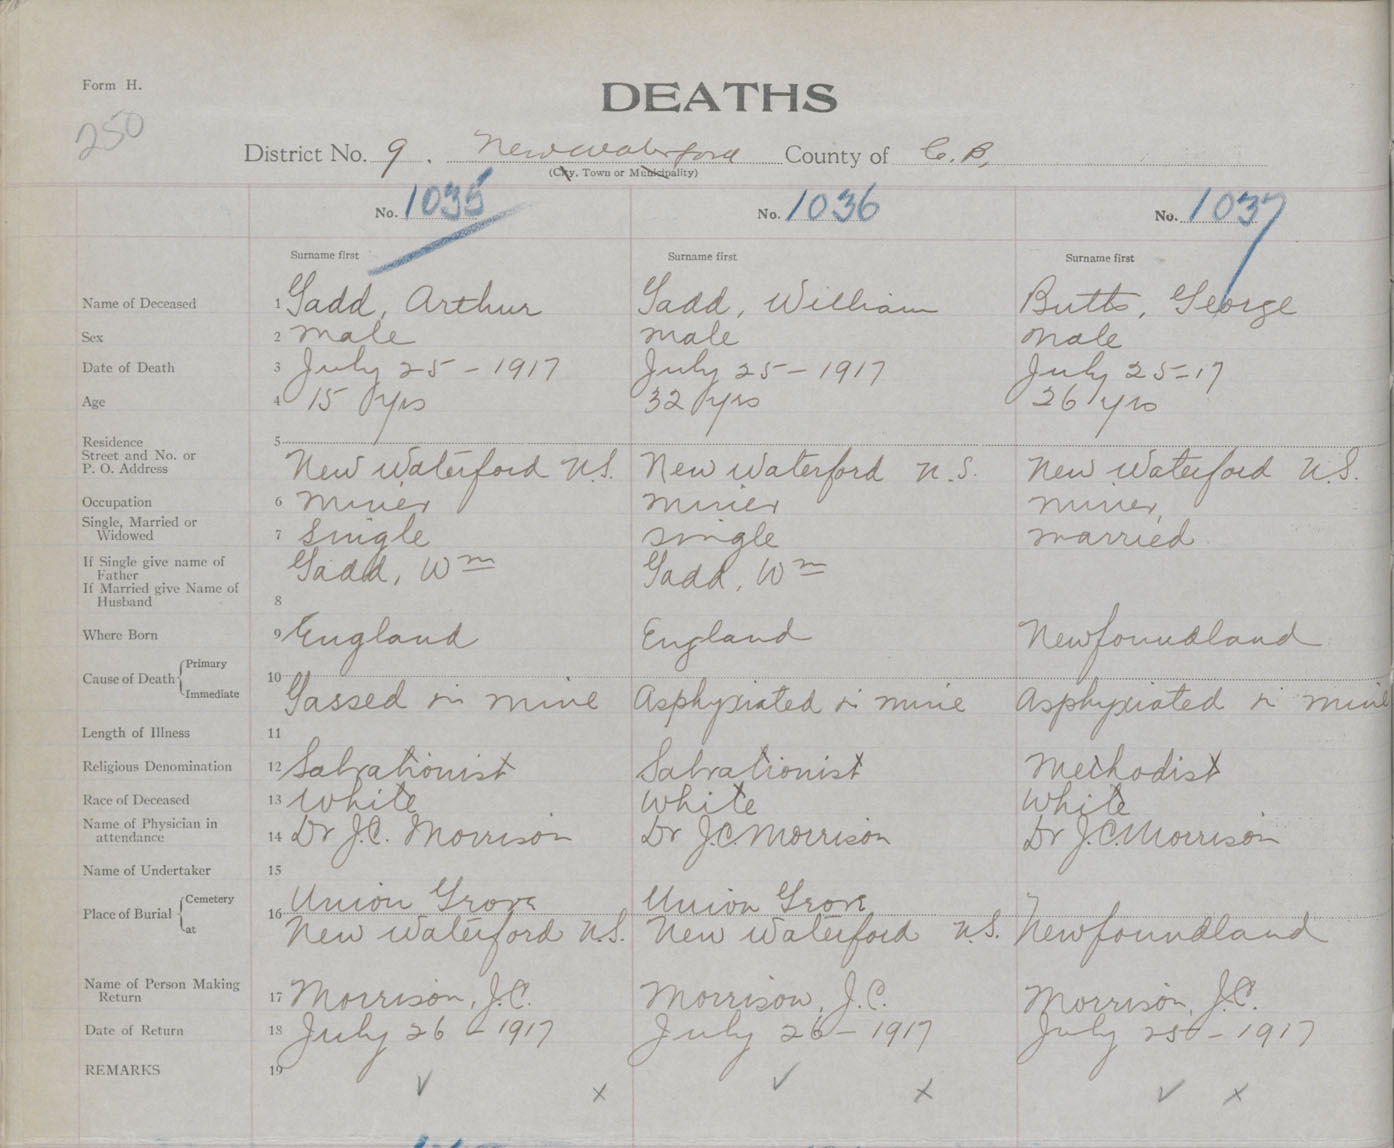 Form H.
DEATHS
250
District No. 9. New Waterford County of C. B.
(City, Town or Municipality)
No. 1035 No. 1036 No. 1037
Surname first Surname first Surname first
Name of Deceased 1 Gadd, Arthur Gadd, William Butts, George
Sex 2 male male male
Date of Death 3 July 25 - 1917 July 25 - 1917 July 25-17
Age 4 15 yrs 32 yrs 26 yrs
Residence 5
Street and No. or
P. O. Address New Waterford N.S. New Waterford N.S. New Waterford N.S.
Occupation 6 miner miner miner,
Single, Married or
Widowed 7 Single single married
If Single give name of
Father Gadd, Wm Gadd, Wm
If Married give Name of
Husband 8
Where Born 9 England England Newfoundland
Cause of Death Primary 10
Immediate Gassed in mine Asphyxiated in mine Asphyxiated in mine
Length of Illness 11
Religious Denomination 12 Salvationist Salvationist Methodist
Race of Deceased 13 White White White
Name of Physician in
attendance 14 Dr J.C. Morrison Dr J.C. Morrison Dr J.C. Morrison
Name of Undertaker 15
Place of Burial Cemetery 16 Union Grove Union Grove
at New Waterford N.S. New Waterford N.S. Newfoundland
Name of Person Making
Return 17 Morrison, J.C. Morrison, J.C. Morrison, J.C.
Date of Return 18 July 26 - 1917 July 26 - 1917 July - 1917
REMARKS 19
✓ x ✓ x ✓ x